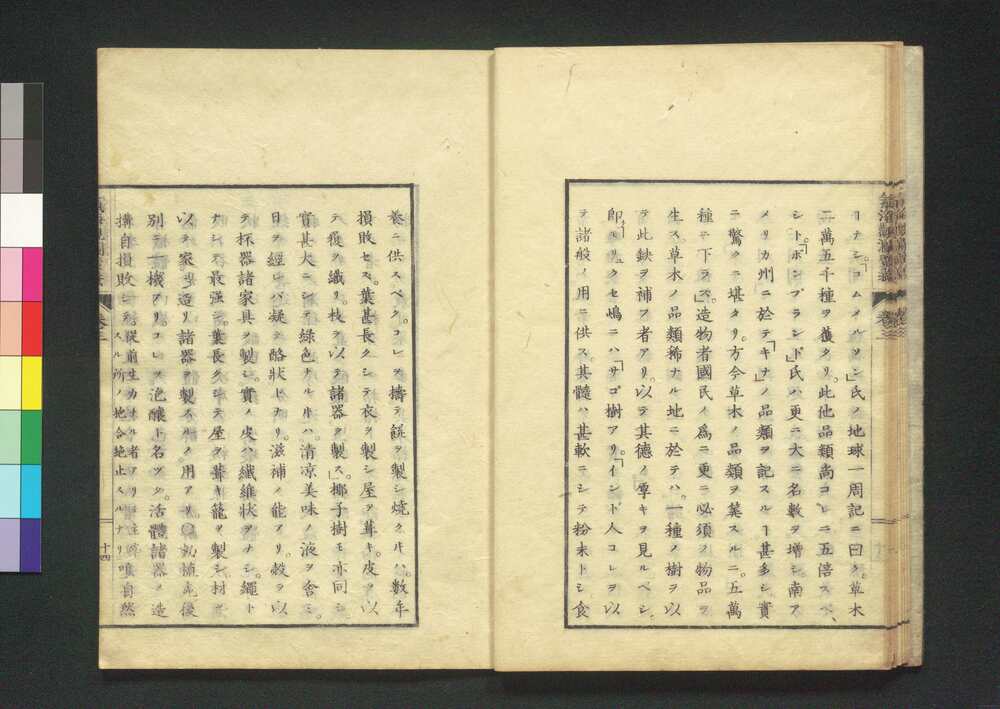 ーテ「シコムメルソン」氏ノ地球一周記ニ曰ク。草木
二萬五千種ヲ獲タリ。此他品類尚コレニ五倍スベ、
シト。「ボンプランド」氏ハ更ニ大ニ名數ヲ増シ。南ア
メリカ州ニ於テ「キナ」ノ品類ヲ記スルヿ甚多シ。實
ニ驚クニ堪タリ。方今草木ノ品類ヲ算スルニ。五萬
種ニ下ラス」造物者國民ノ為ニ更ニ必須ノ物品ヲ
生ス草木ノ品類稀ナル地ニ於テハ。一種ノ樹ヲ以
テ此缺ヲ補フ者アリ。以テ其德ノ厚キヲ見ルベシ。
即「モリュクセ」嶋ニハ「サゴ」樹アリ。「インド」人コレヲ以
テ諸般ノ用ニ供ス。其髓ハ甚軟ニシテ粉末トシ食
養ニ供スベク。コレヲ擣テ餅ヲ製シ焼クハ。數年
損敗セス。葉甚長クシテ衣ヲ製シ屋ヲ葺キ。皮ヲ以
テ履ヲ織リ。枝ヲ以テ諸器ヲ製ス」椰子樹モ亦同シ
實甚大ニシテ綠色ナルキハ。清凉美味ノ液ヲ含ミ。
日ヲ經レハ凝テ酪狀トナリ。滋補ノ能アリ。殼ヲ以
テ杯器諸家具ヲ製シ。實ノ皮ハ纖維狀ヲナシ。繩ト
ナシテ最强シ。葉長クシテ屋ヲ葺キ籠ヲ製シ。材ヲ
以テ家ヲ造リ諸器ヲ製スルノ用アリ。
別テ一機アリ。コレヲ泡釀ト名ヅク。活體諸器ヲ造
搆自損敗シテ。從前生力
スル所ノ地合絶止スルナリ
唯自然
卷三
十四